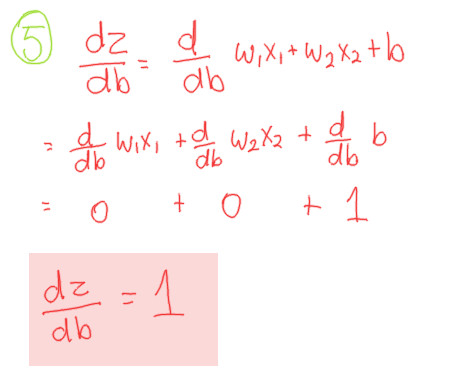 ⑤ dz/db = d/db w₁x₁ + w₂x₂ + b
= d/db w₁x₁ + d/db w₂x₂ + d/db b
= 0 + 0 + 1
dz/db = 1